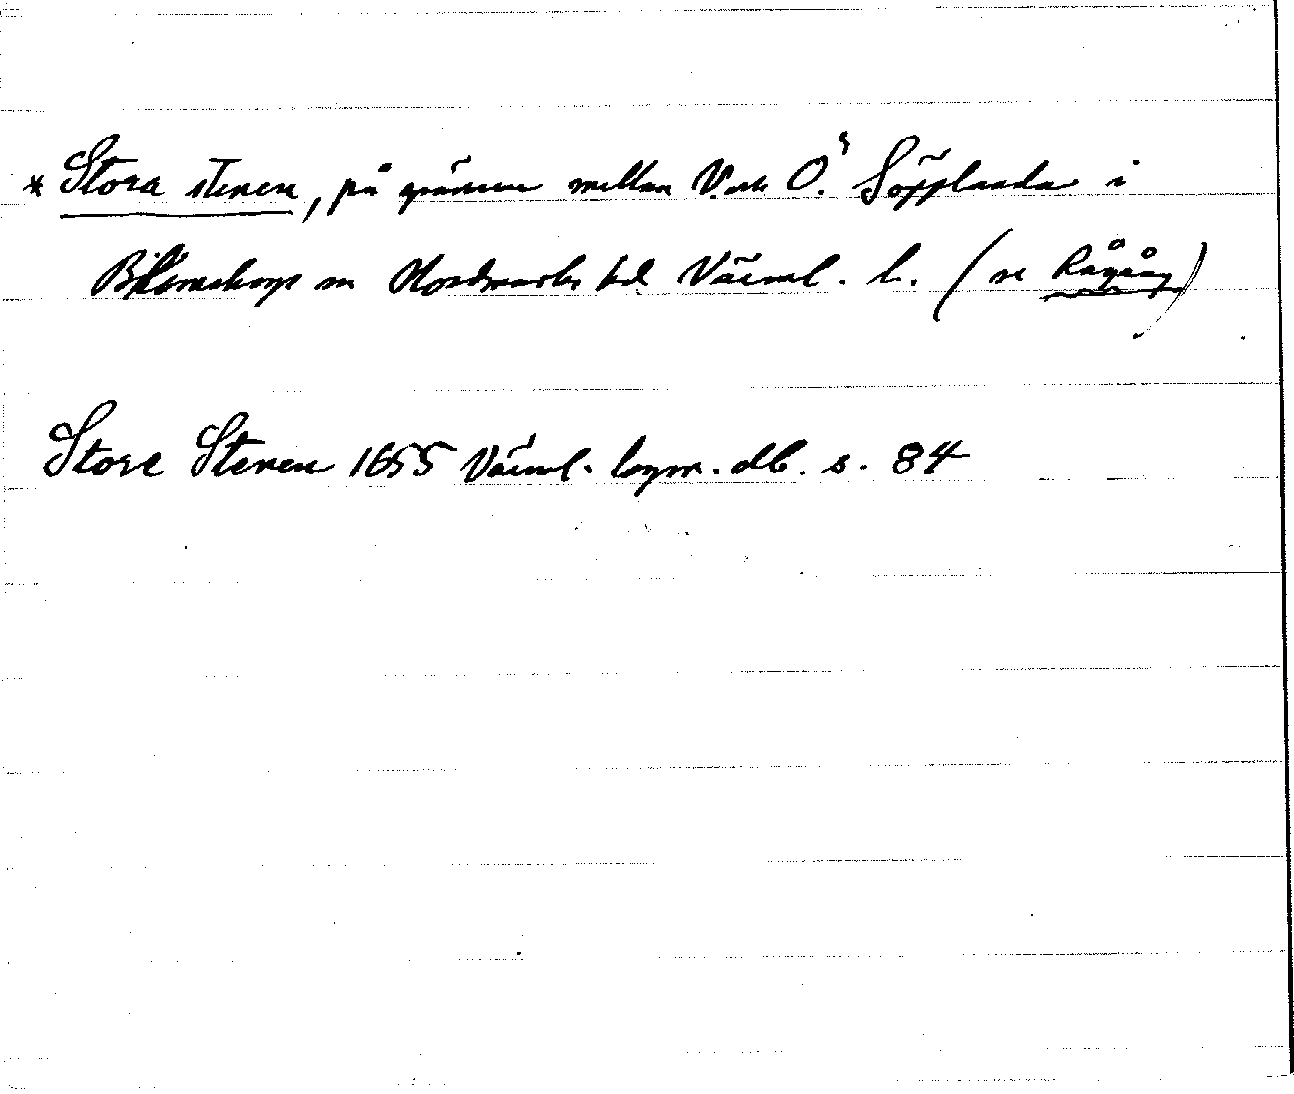 * Stora stenen, på gränsen mellan V. och Ö. Söpplanda i
Blomskogs sn Nordmarks hd Värml. l. (se Rågång)
Store Stenen 1655 Värml. lagm. db. s. 84